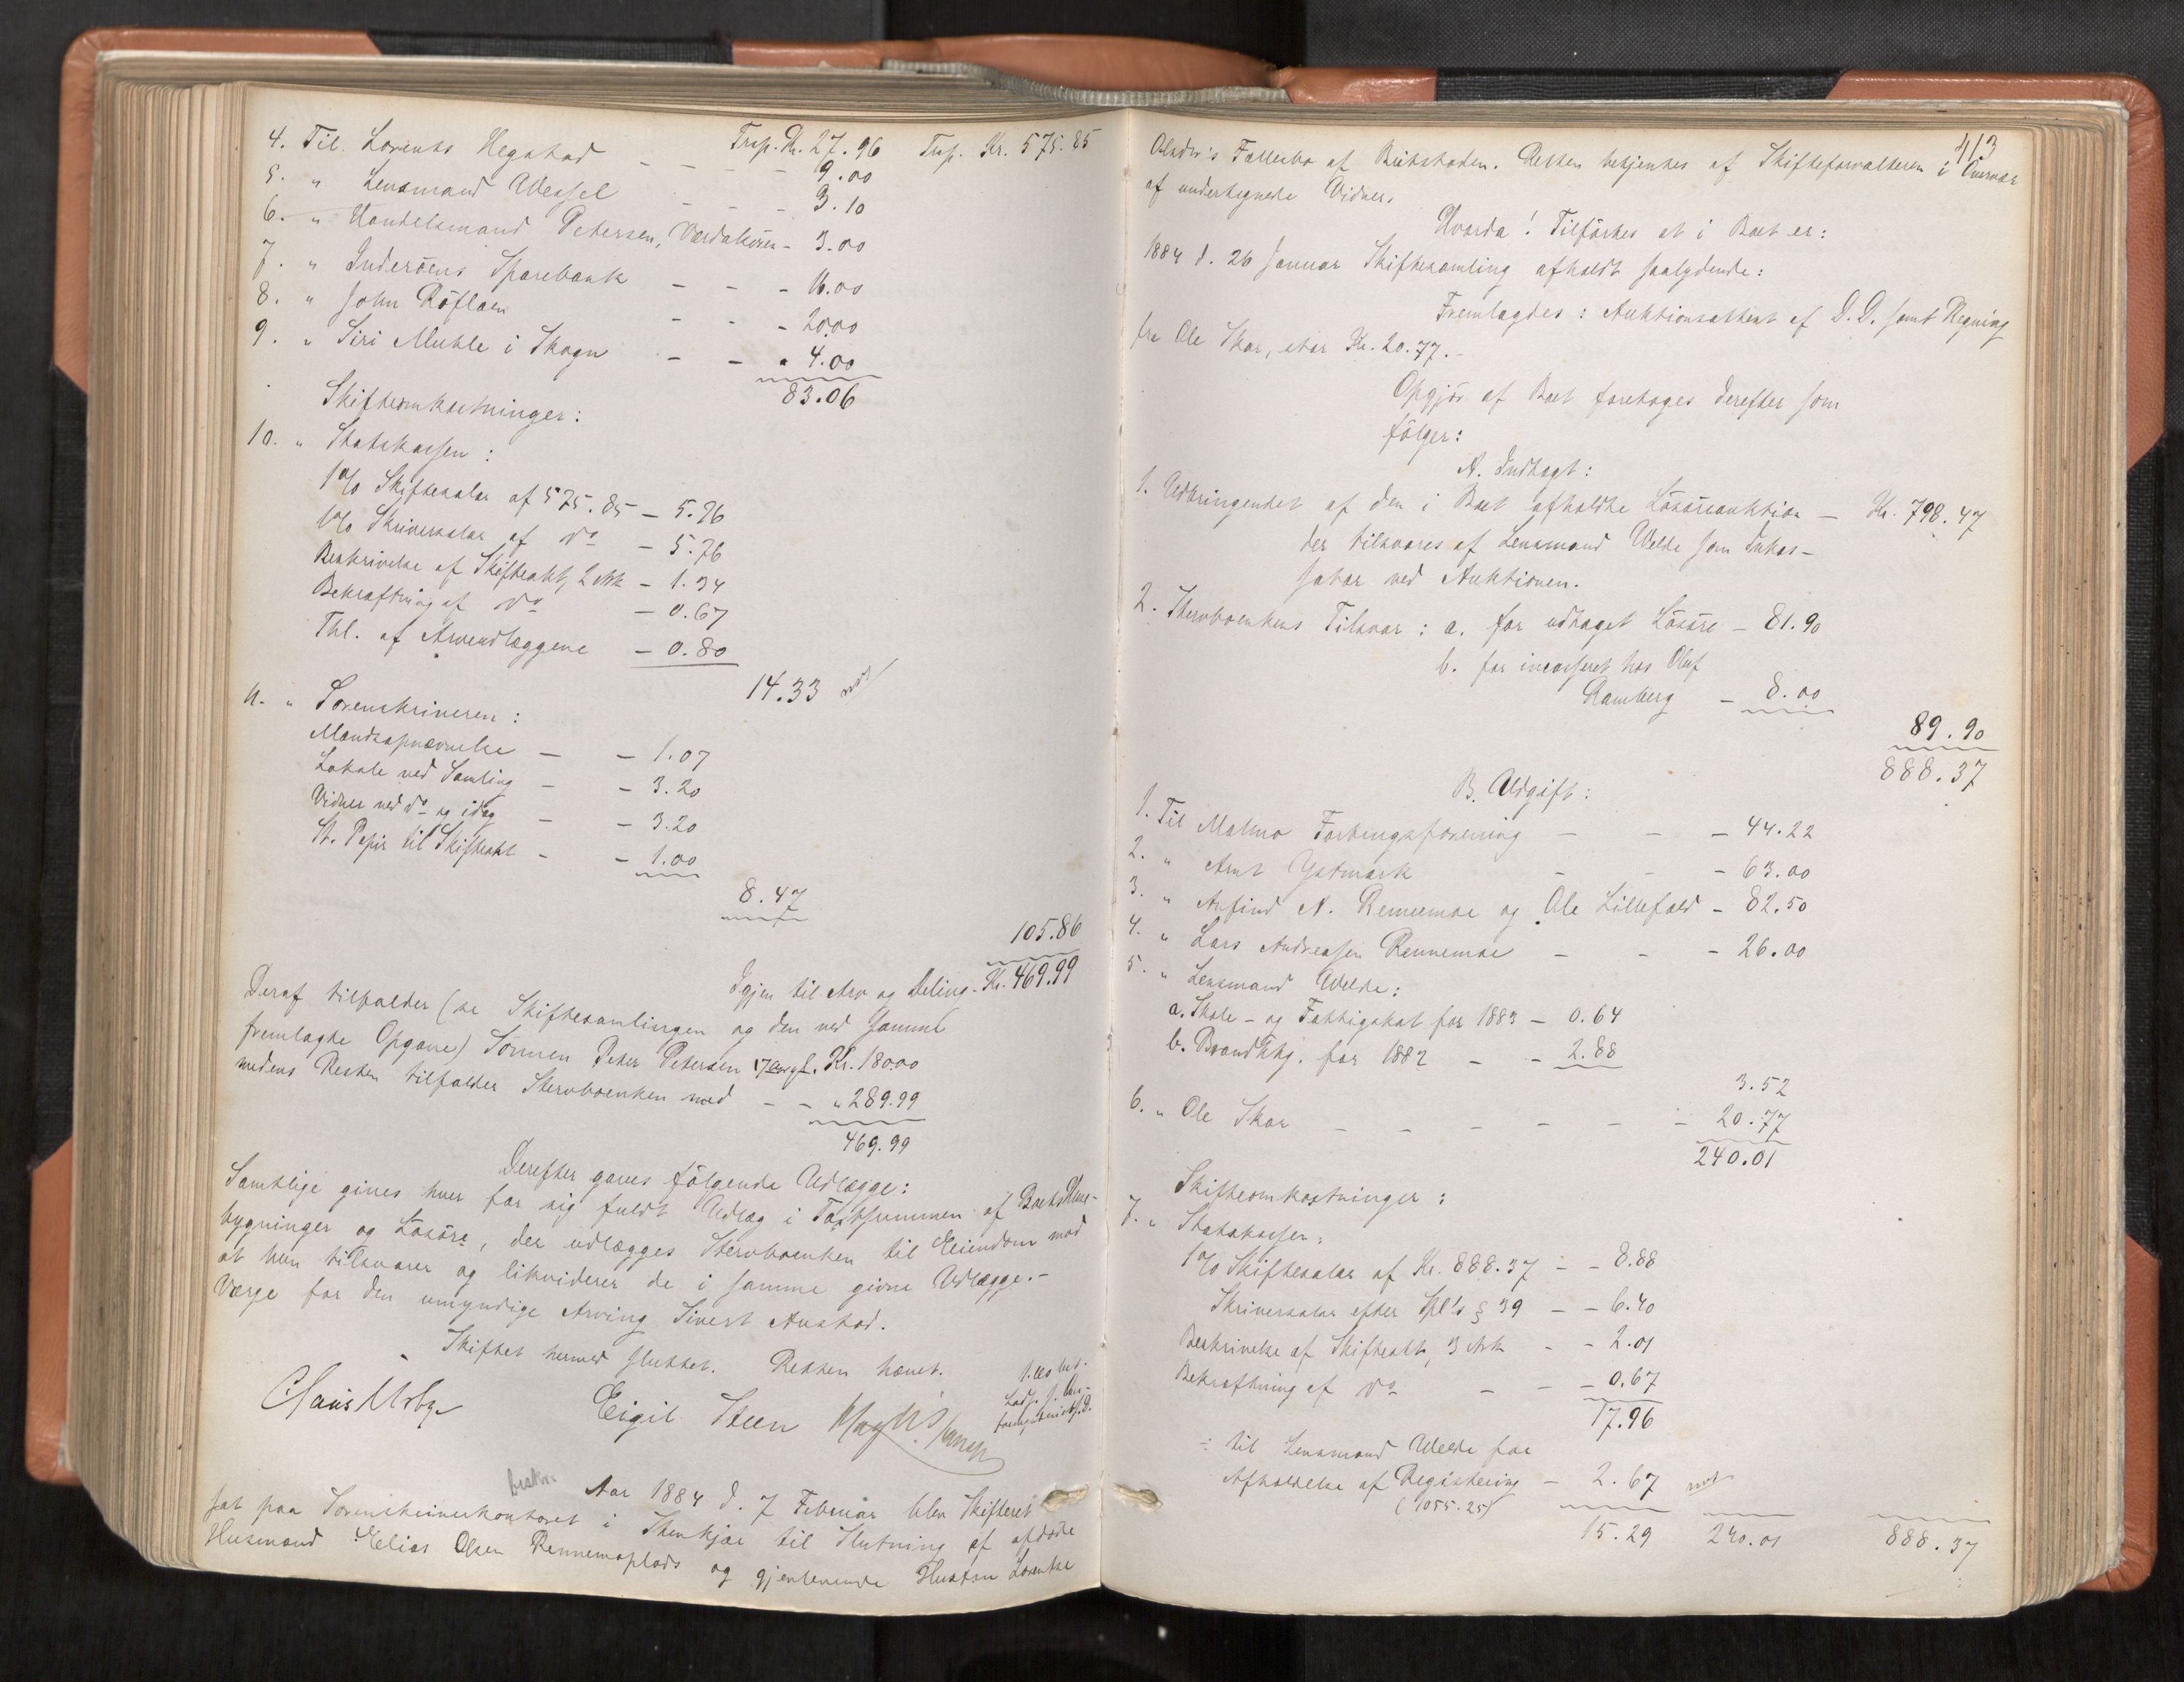 Trsp. Kr. 27.96 Trsp. Kr. 575.85
4. Til Lorents Hegstad - - - 9.00
5. " Lensmand Wessel - - - 3.10
6. " Handelsmand Petersen, Værdalsören - 3.00
7. " Inderöens Sparebank - - - 16.00
8. " John Röflaen - - - 20.00
9. " Siri Mukle i Skogn - - " 4.00
83.06
Skifteomkostninger:
10. " Statskassen:
1% Skiftesalar af 575.85 - 5.76
1% Skriversalar af do - 5.76
Beskrivelse af Skifteakt, 2 Ark - 1.34
Bekræftning af do - 0.67
Thl. af Arveudlæggene - 0.80
14.33
11. " Sorenskriveren:
Mandsopnævnelse - - 1.07
Lokale ved Samling - - 3.20
Vidner ved do og idag - - 3.20
St. Papir til Skifteakt - - 1.00
8.47
105.86
Igjen til Arv og Deling - Kr. 469.99
Deraf tilfalder (se Skiftesamlingen og den ved samme
fremlagte Opgave) Sönnen Peter Petersen 17 Aar gl. Kr. 180.00
medens Resten tilfalder Stervboenken med - - " 289.99
469.99
Derefter gaves fölgende Udlægge:
Samtlige gives hver for sig fuldt Udlæg i Taxtsummen af Boets Huse-
bygninger og Lösöre, der udlægges Stervboenken til Eiendom mod
at hun tilsvarer og likviderer de i samme givne Udlægge.-
Værge for den umyndige Arving Sivert Austad.
Skiftet hermed sluttet. Retten hævet.
Eigil Steen
Aar 1884 d. 7 Februar blev Skifteret
sat paa Sorenskriverkontoret i Stenkjær til Slutning af afdöde
Husmand Elias Olsen Rennemoplads og gjenlevende Hustru Lorentse
413
Olsdtr's Fællesbo af Beitstaden. Retten betjentes af Skifteforvalteren i Overvær
af undertegnede Vidner.
Hvorda! Tilförtes at i Boet er:
1884 d. 26 Januar Skiftesamling afholdt saalydende:
Fremlagdes: Auktionsattest af D.D. samt Regning
fra Ole Skar, stor Kr. 20.77.-
Opgjör af Boet foretoges derefter som
fölger:
A. Indtægt:
1. Udbringendet af den i Boet afholdte Lösöreauktion - Kr. 798.47
der tilsvares af Lensmand Welde som Inkas-
sator ved Auktionen.
2. Stervboenkens Tilsvar: a. for udtaget Lösöre - 81.90
b. for incasseret hos Oluf
Ramberg - 8.00
89.90
888.37
B. Udgift:
1. Til Malmo Forbrugsforening - - - 44.22
2. " Arnt Ystmark - - - 63.00
3. " Anfind N. Rennemoe og Ole Lillefold - 82.50
4. " Lars Andreassen Rennemoe - - - 26.00
5. " Lensmand Welde:
a. Skole- og Fattigskat for 1883 - 0.64
b. Brandktg. for 1882 - - 2.88
3.52
6. " Ole Skar - - - - - - 20.77
240.01
Skifteomkostninger:
7. " Statskassen:
1% Skiftesalar af Kr. 888.37 - - 8.88
Skriversalar efter Spl's § 39 - - 6.40
Beskrivelse af Skifteakt, 3 Ark - - 2.01
Bekræftning af do - - - 0.67
17.96
÷ til Lensmand Welde for
Afholdelse af Registrering - 2.67
(1055.25)
15.29 240.01 888.37